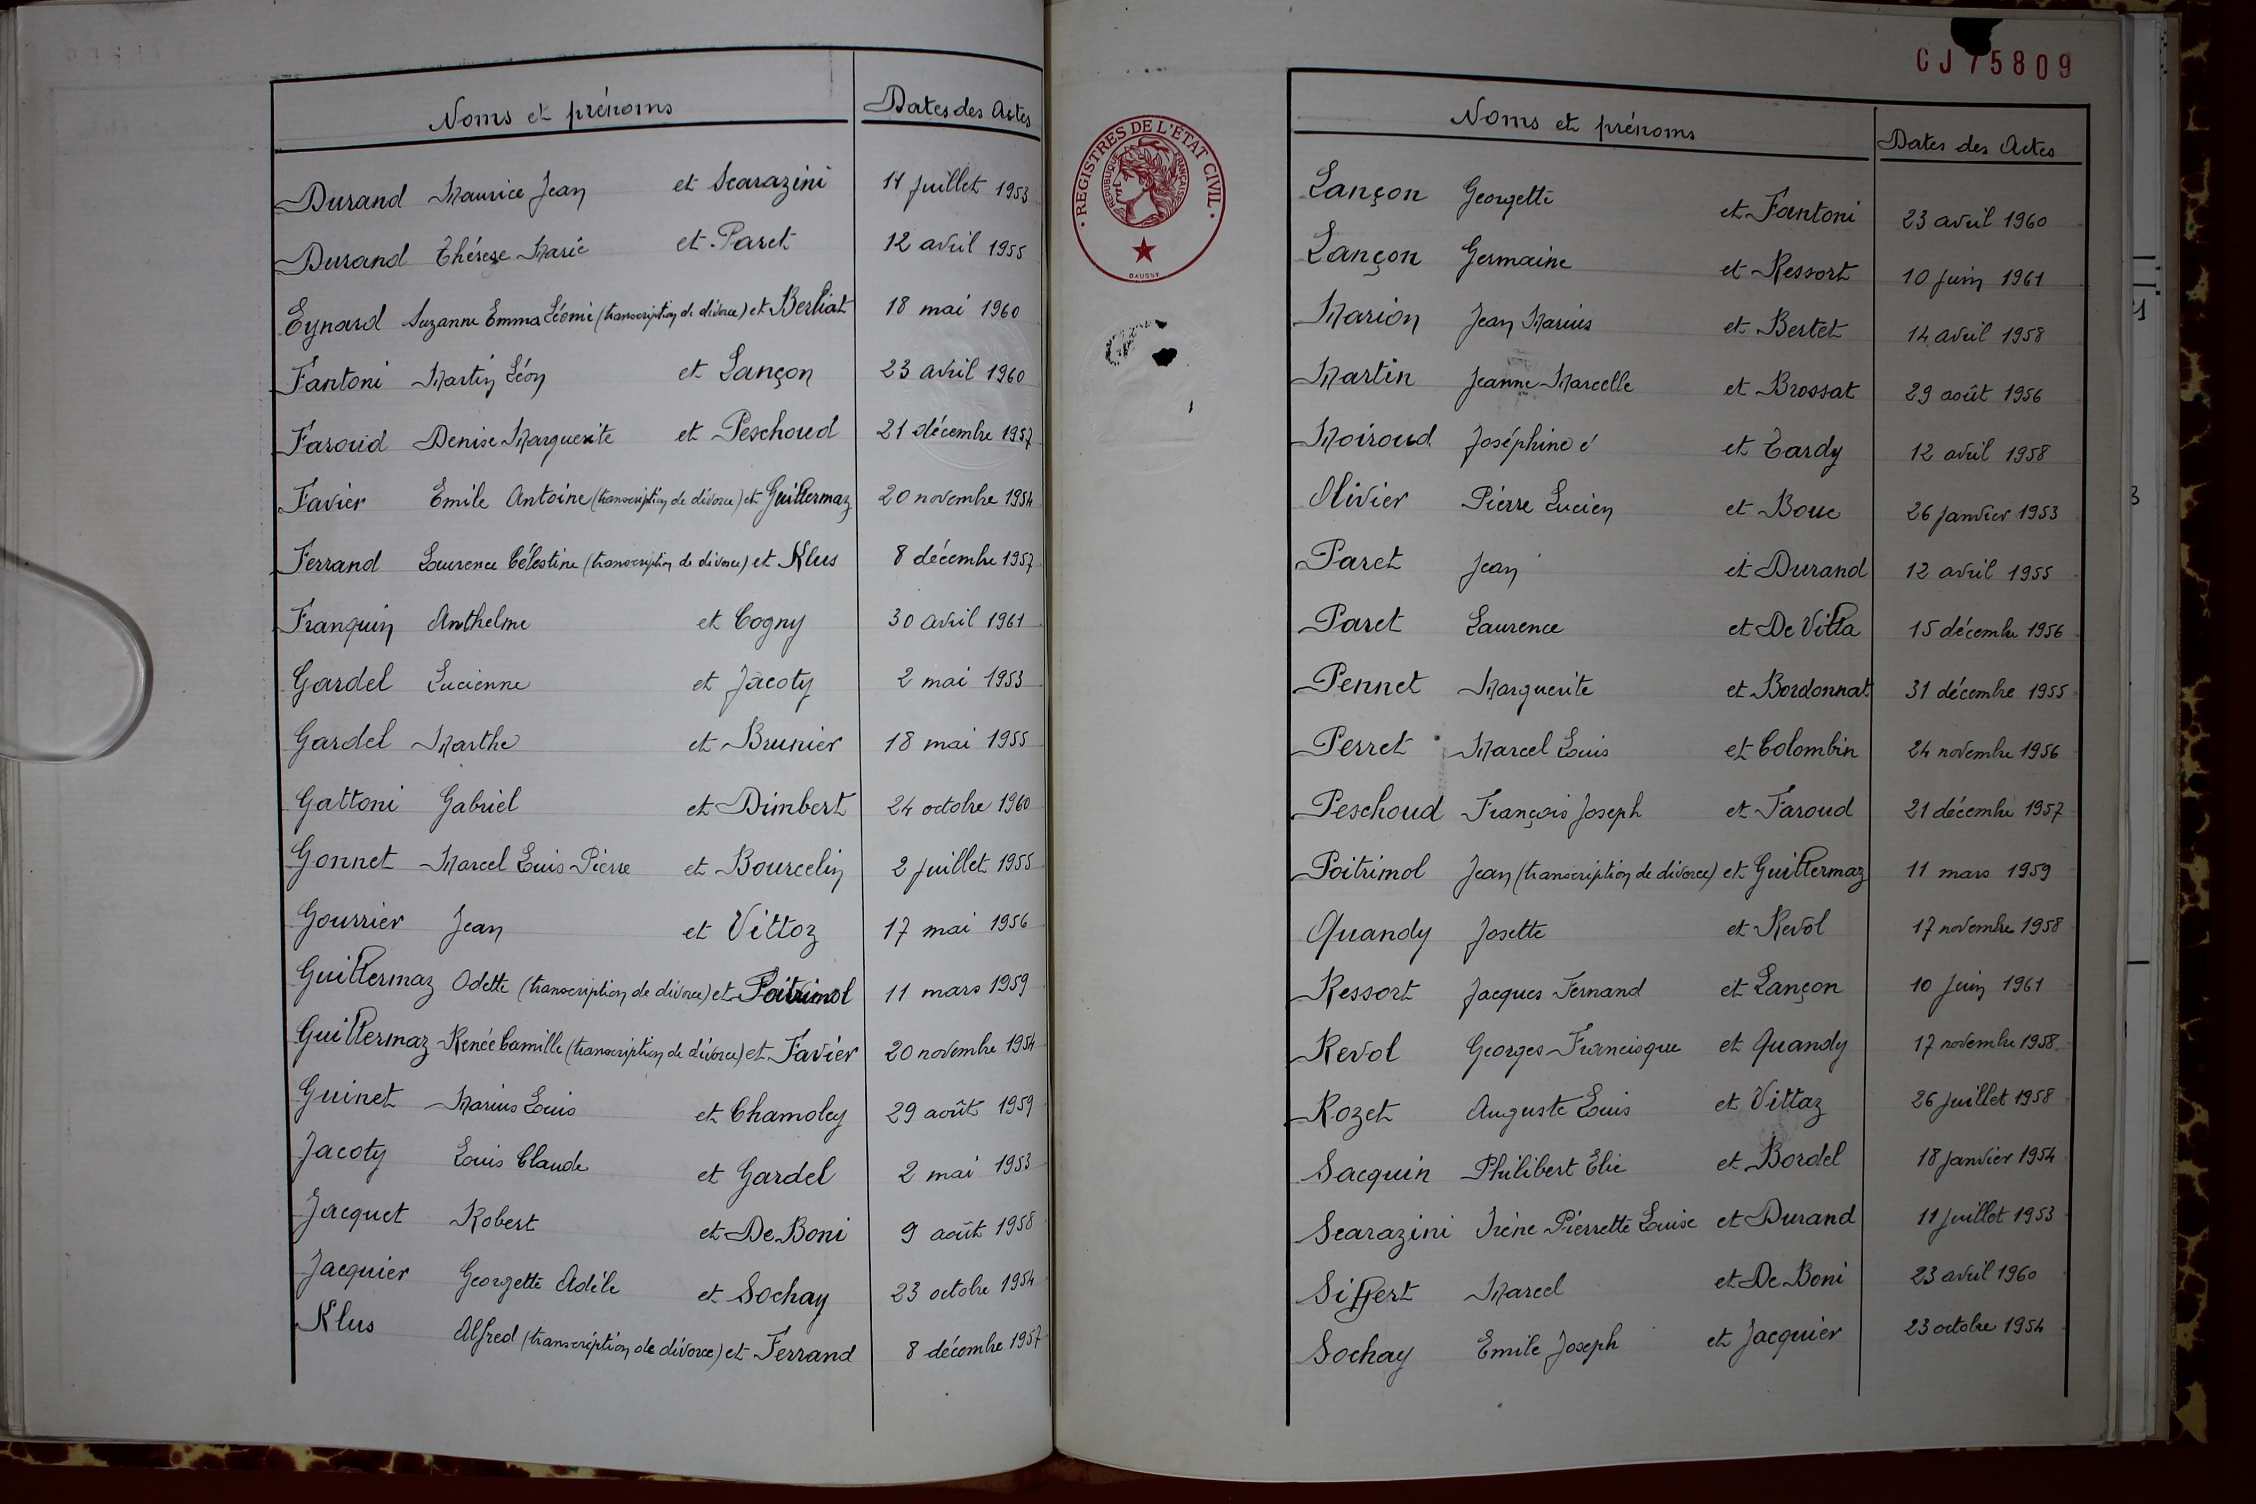 Noms et prénoms Dates des Actes
Durand Maurice Jean et Scarazini 11 juillet 1953
Durand Thérèse Marie et Paret 12 avril 1955
Eynard Suzanne Emma Léonie (transcription de divorce) et Berliat 18 mai 1960
Fantoni Martin Léon et Lançon 23 avril 1960
Faroud Denise Marguerite et Peschoud 21 décembre 1957
Favier Emile Antoine (transcription de divorce) et Guillermaz 20 novembre 1954
Ferrand Laurence Célestine (transcription de divorce) et Klus 8 décembre 1957
Franquin Anthelme et Cogny 30 avril 1961
Gardel Lucienne et Jacoty 2 mai 1953
Gardel Marthe et Brunier 18 mai 1955
Gattoni Gabriel et Dimbert 24 octobre 1960
Gonnet Marcel Louis Pierre et Bourcelin 2 juillet 1955
Gourrier Jean et Vittoz 17 mai 1956
Guillermaz Odette (transcription de divorce) et Poitrimol 11 mars 1959
Guillermaz Renée Camille (transcription de divorce) et Favier 20 novembre 1954
Guinet Marius Louis et Chamoley 29 août 1959
Jacoty Louis Claude et Gardel 2 mai 1953
Jacquet Robert et De Boni 9 août 1958
Jacquier Georgette Adèle et Sochay 23 octobre 1954
Klus Alfred (transcription de divorce) et Ferrand 8 décembre 1957
REGISTRES DE L'ÉTAT CIVIL
REPUBLIQUE FRANÇAISE
DAUSSY
CJ 75809
Noms et prénoms Dates des Actes
Lançon Georgette et Fantoni 23 avril 1960
Lançon Germaine et Ressort 10 juin 1961
Marion Jean Marius et Bertet 14 avril 1958
Martin Jeanne Marcelle et Brossat 29 août 1956
Moiroud Joséphine et Tardy 12 avril 1958
Olivier Pierre Lucien et Bouc 26 janvier 1953
Paret Jean et Durand 12 avril 1955
Paret Laurence et De Villa 15 décembre 1956
Pennet Marguerite et Bordonnat 31 décembre 1955
Perret Marcel Louis et Colombin 24 novembre 1956
Peschoud François Joseph et Faroud 21 décembre 1957
Poitrimol Jean (transcription de divorce) et Guillermaz 11 mars 1959
Quandy Josette et Revol 17 novembre 1958
Ressort Jacques Fernand et Lançon 10 juin 1961
Revol Georges Francisque et Quandy 17 novembre 1958
Rozet Auguste Louis et Vittaz 26 juillet 1958
Sacquin Philibert Elie et Bordel 18 janvier 1954
Scarazini Irène Pierrette Louise et Durand 11 juillet 1953
Siffert Marcel et De Boni 23 avril 1960
Sochay Emile Joseph et Jacquier 23 octobre 1954